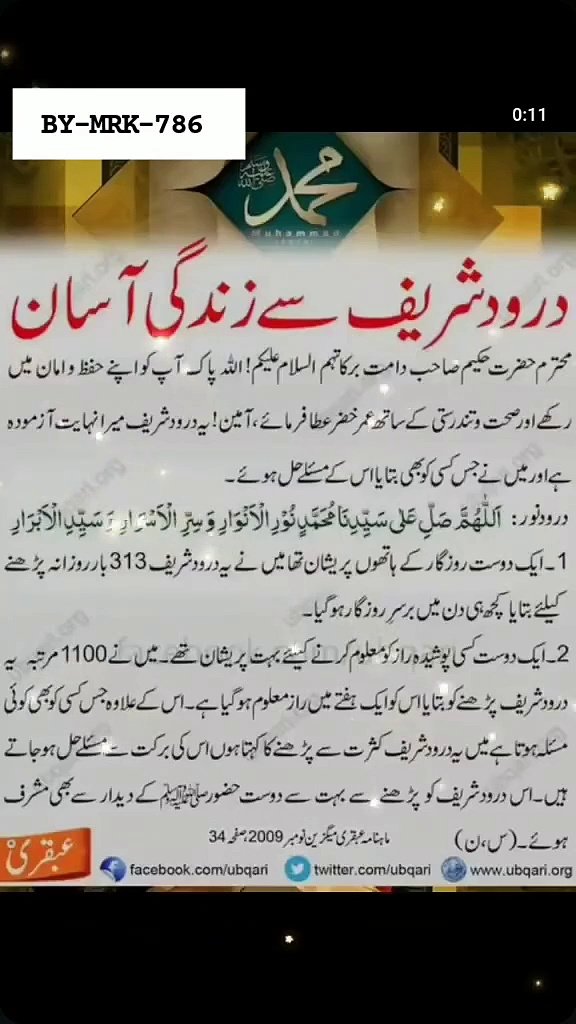 BY-MRK-786
0:11
صلى الله عليه وسلم
محمد
Muhammad
درود شریف سے زندگی آسان
محترم حضرت حکیم صاحب دامت برکاتہم السلام علیکم! اللہ پاک آپ کو اپنے حفظ و امان میں
رکھے اور صحت و تندرستی کے ساتھ عمر خضر عطا فرمائے، آمین! یہ درود شریف میرا نہایت آزمودہ
ہے اور میں نے جس کسی کو بھی بتایا اس کے مسئلے حل ہوئے۔
درود نور: اَللّٰهُمَّ صَلِّ عَلٰى سَيِّدِنَا مُحَمَّدٍ نُوْرِ الْاَنْوَارِ وَسِرِّ الْاَسْرَارِ وَسَيِّدِ الْاَبْرَارِ
1۔ ایک دوست روزگار کے ہاتھوں پریشان تھا میں نے یہ درود شریف 313 بار روزانہ پڑھنے
کیلئے بتایا کچھ ہی دن میں برسر روزگار ہو گیا۔
2۔ ایک دوست کسی پوشیدہ راز کو معلوم کرنے کیلئے بہت پریشان تھے۔ میں نے 1100 مرتبہ یہ
درود شریف پڑھنے کو بتایا اس کو ایک ہفتے میں راز معلوم ہو گیا ہے۔ اس کے علاوہ جس کسی کو بھی کوئی
مسئلہ ہوتا ہے میں یہ درود شریف کثرت سے پڑھنے کا کہتا ہوں اس کی برکت سے مسئلے حل ہو جاتے
ہیں۔ اس درود شریف کو پڑھنے سے بہت سے دوست حضور ﷺ کے دیدار سے بھی مشرف
ہوئے۔ (س، ن) ماہنامہ عبقری میگزین نومبر 2009، صفحہ 34
عبقری
facebook.com/ubqari twitter.com/ubqari www.ubqari.org